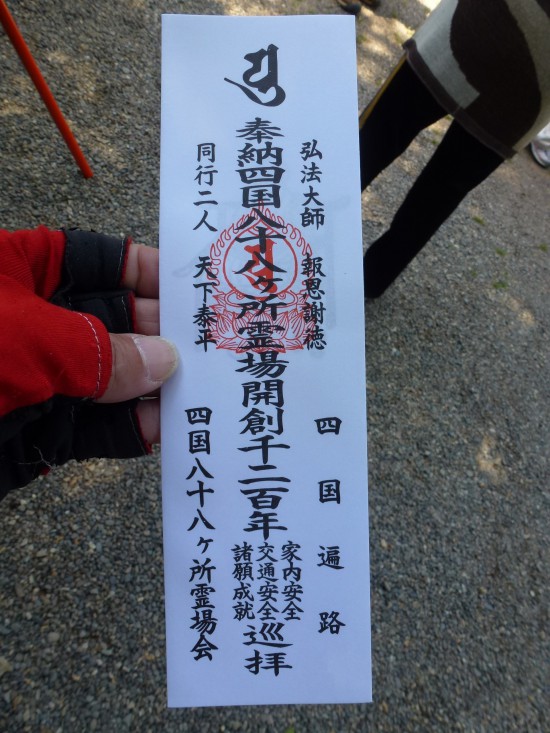 弘法大師 報恩謝徳
四国遍路
奉納四国八十八ヶ所霊場開創千二百年
家内安全
交通安全
諸願成就
巡拝
同行二人 天下泰平
四国八十八ヶ所霊場会